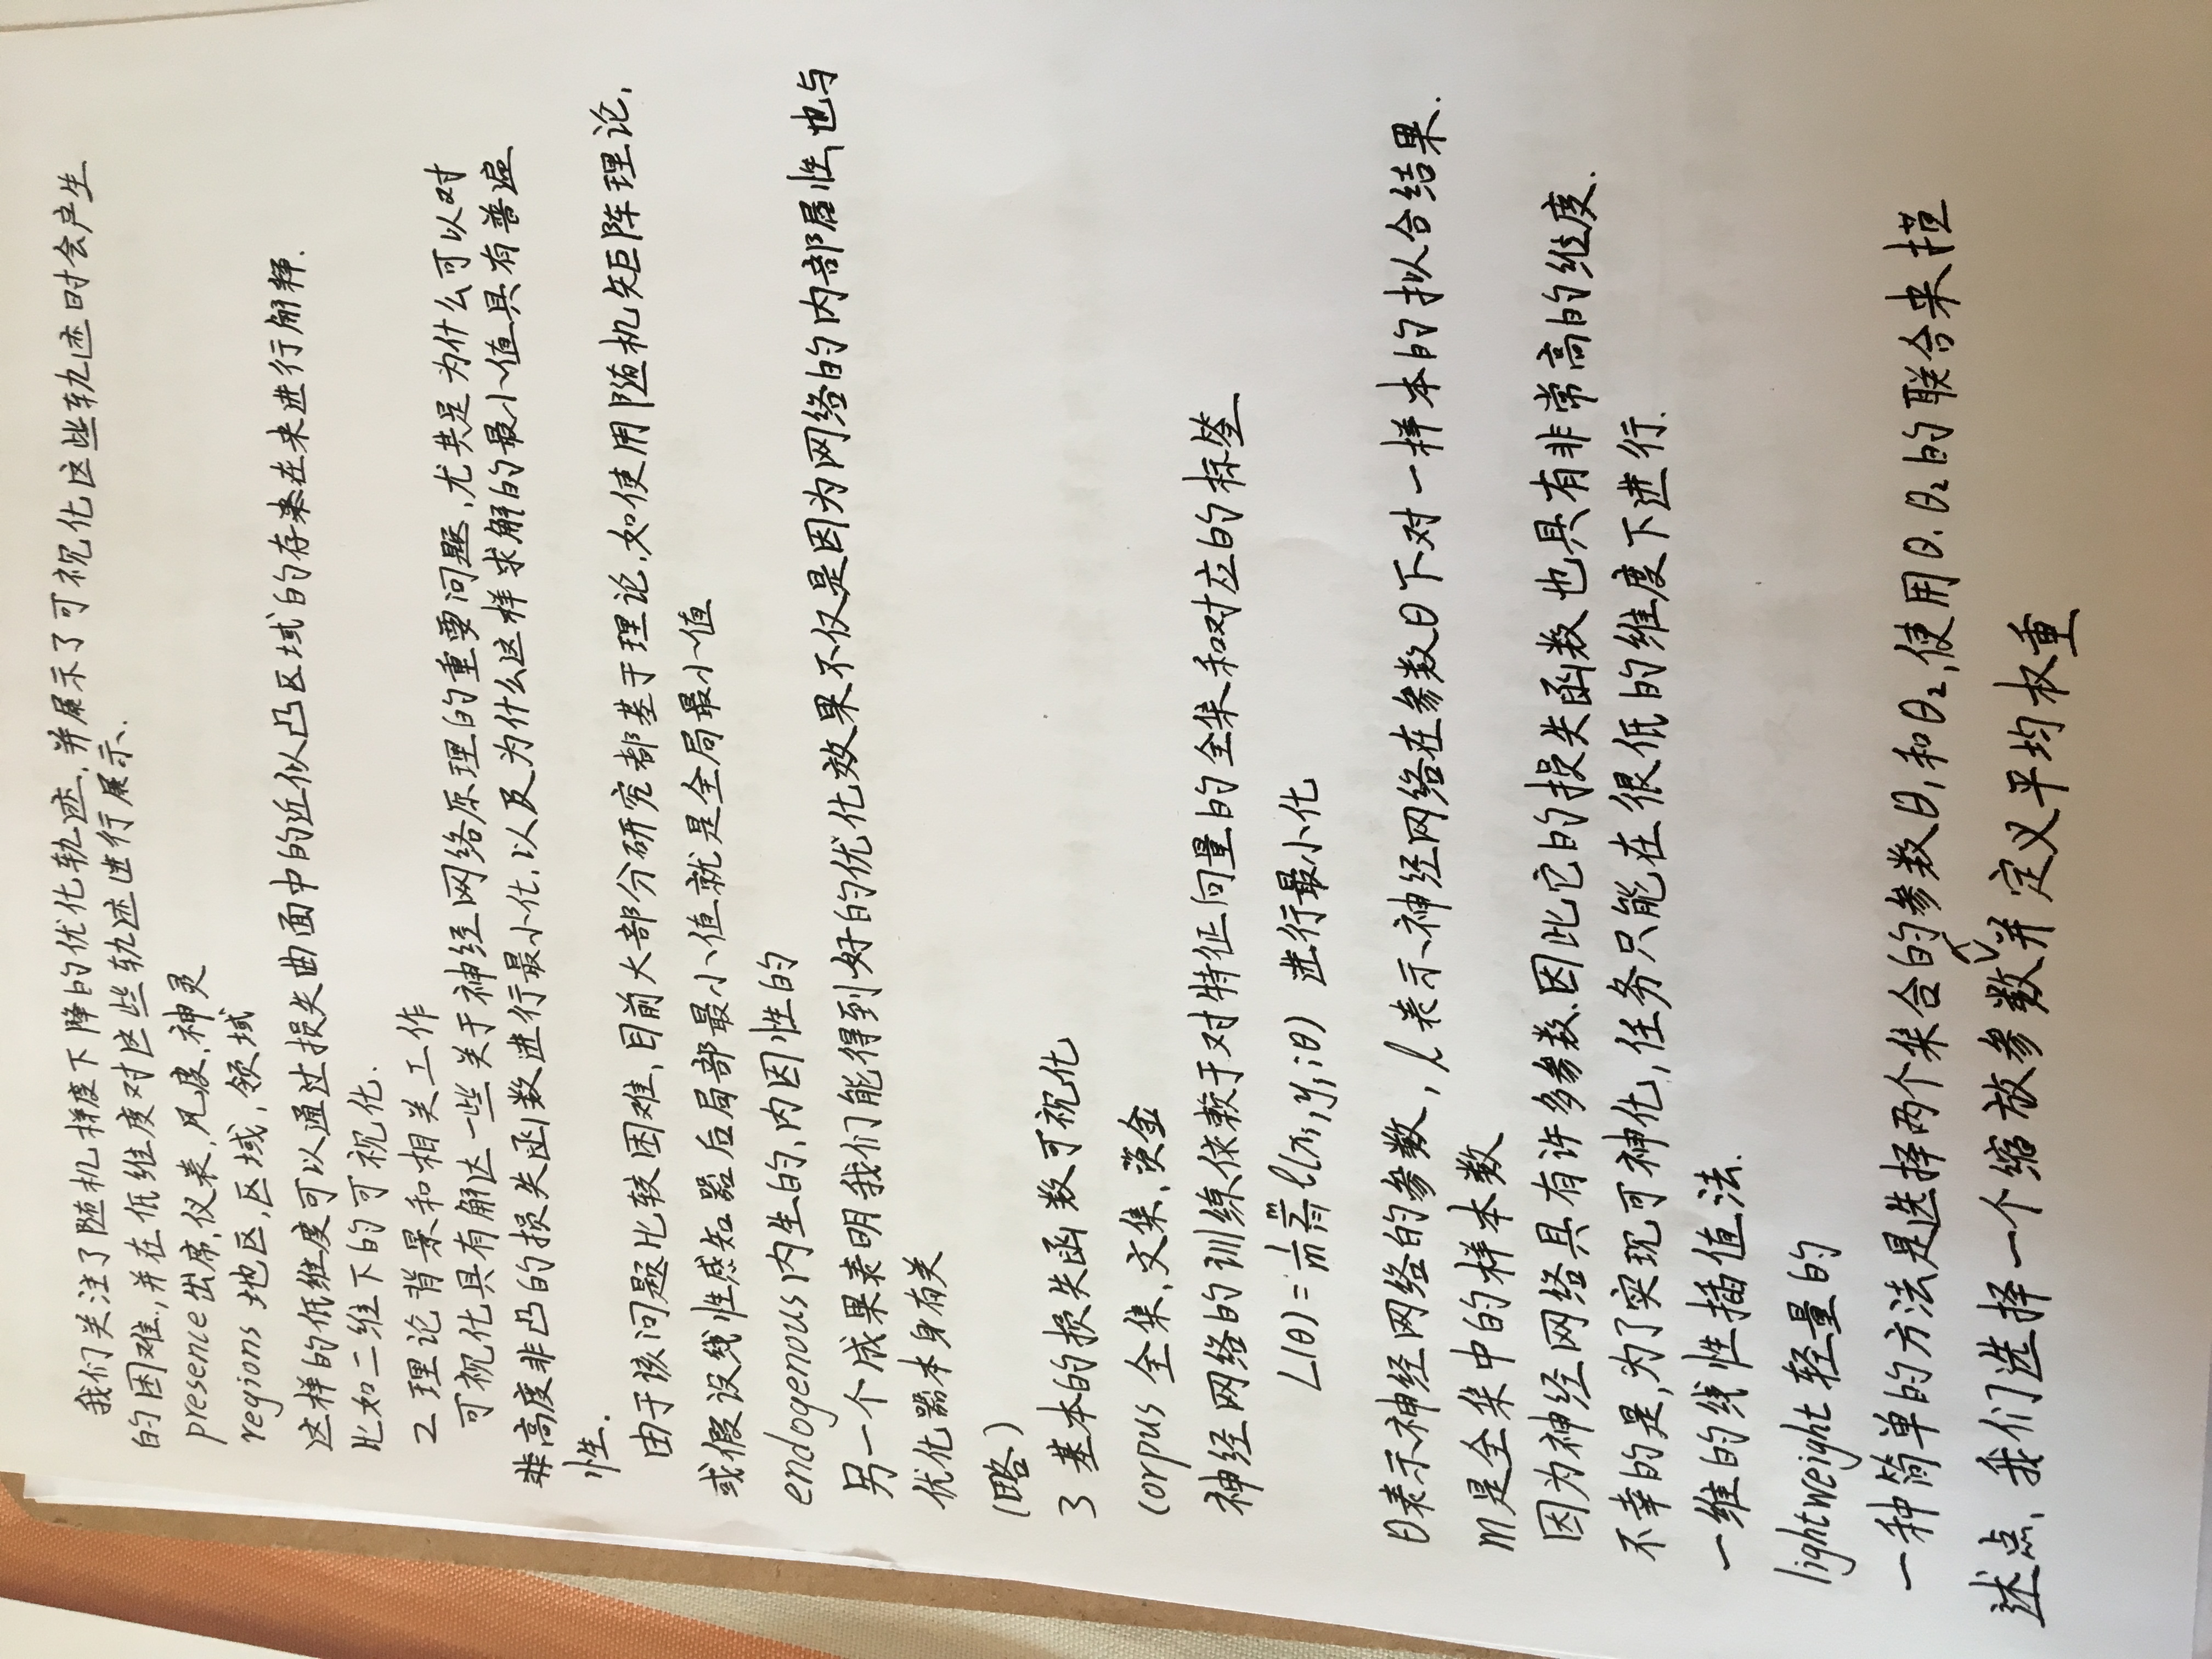 我们关注了随机梯度下降的优化轨迹,并展示了可视化这些轨迹时会产生
的困难,并在低维度对这些轨迹进行展示.
presence 出席,仪表,风度,神灵
regions 地区,区域,领域
这样的低维度可以通过损失曲面中的近似凸区域的存在来进行解释.
比如二维下的可视化.
2 理论背景和相关工作
可视化具有解达一些关于神经网络原理的重要问题,尤其是为什么可以对
非高度非凸的损失函数进行最小化,以及为什么这样求解的最小值具有普遍
性.
由于该问题比较困难,目前大部分研究都基于理论,如使用随机矩阵理论,
或假设线性感知器后局部最小值就是全局最小值
endogenous 内生的,内因性的
另一个成果表明我们能得到好的优化效果不仅是因为网络的内部属性,也与
优化器本身有关
(略)
3 基本的损失函数可视化
corpus 全集,文集,资金
神经网络的训练依赖于对特征向量的全集和对应的标签
L(θ)=1/m Σ_{i=1}^{m} l(xi,yi;θ) 进行最小化
θ表示神经网络的参数,l表示神经网络在参数θ下对一样本的拟合结果.
m是全集中的样本数
因为神经网络具有许多参数.因此它的损失函数也具有非常高的维度.
不幸的是,为了实现可神化,任务只能在很低的维度下进行.
一维的线性插值法.
lightweight 轻量的
一种简单的方法是选择两个集合的参数θ1和θ2,使用θ1θ2的联合来描
述点,我们选择一个缩放参数并定义平均权重